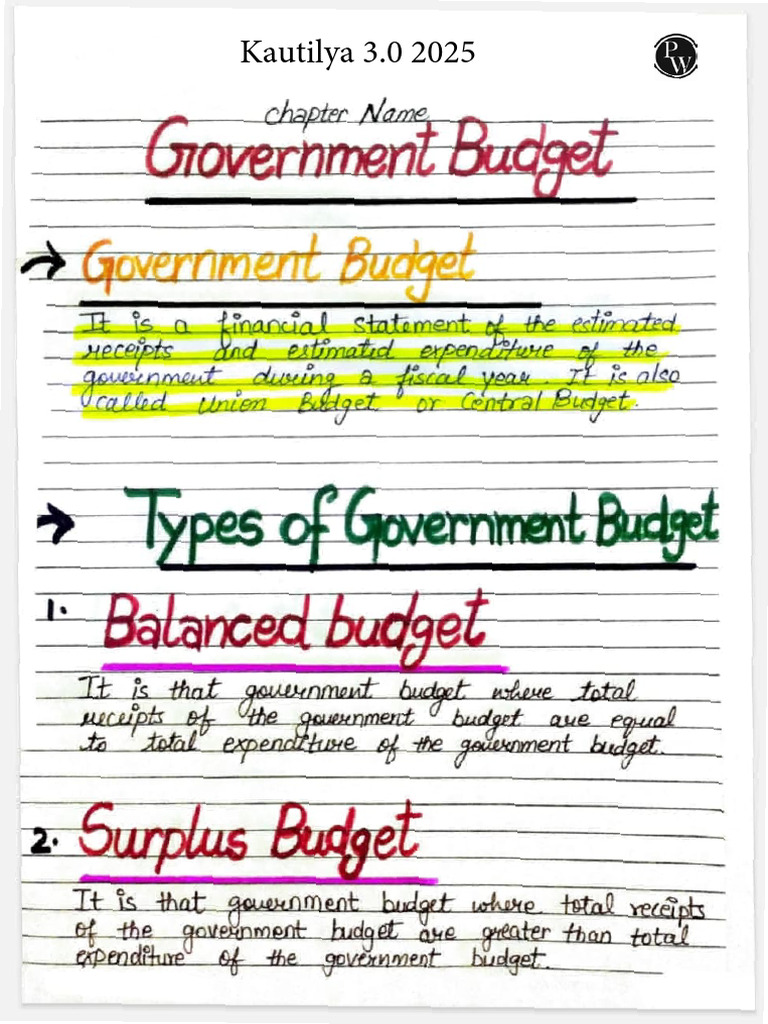 Kautilya 3.0 2025
PW
chapter Name
Government Budget
→ Government Budget
It is a financial statement of the estimated
receipts and estimated expenditure of the
government during a fiscal year. It is also
called Union Budget or Central Budget.
→ Types of Government Budget
1. Balanced budget
It is that government budget where total
receipts of the government budget are equal
to total expenditure of the government budget.
2. Surplus Budget
It is that government budget where total receipts
of the government budget are greater than total
expenditure of the government budget.